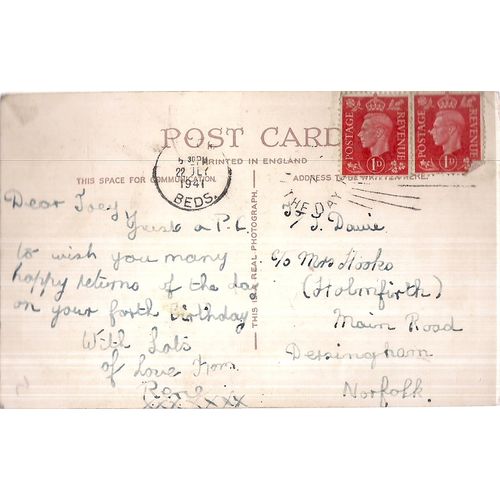 POSTAGE REVENUE 1D
POSTAGE REVENUE 1D
POST CARD
PRINTED IN ENGLAND
THIS SPACE FOR COMMUNICATION
ADDRESS TO BE WRITTEN HERE.
30PM
22 JLY
1941
BEDS.
THE DAY
THIS IS A REAL PHOTOGRAPH.
Dear Joey
Just a P.C.
to wish you many
happy returns of the day
on your forth birthday
With Lots
of love from
Rene
xxx xxxx
J. Davie
c/o Mrs Hooks
(Holmfirth)
Main Road
Dersingham
Norfolk.